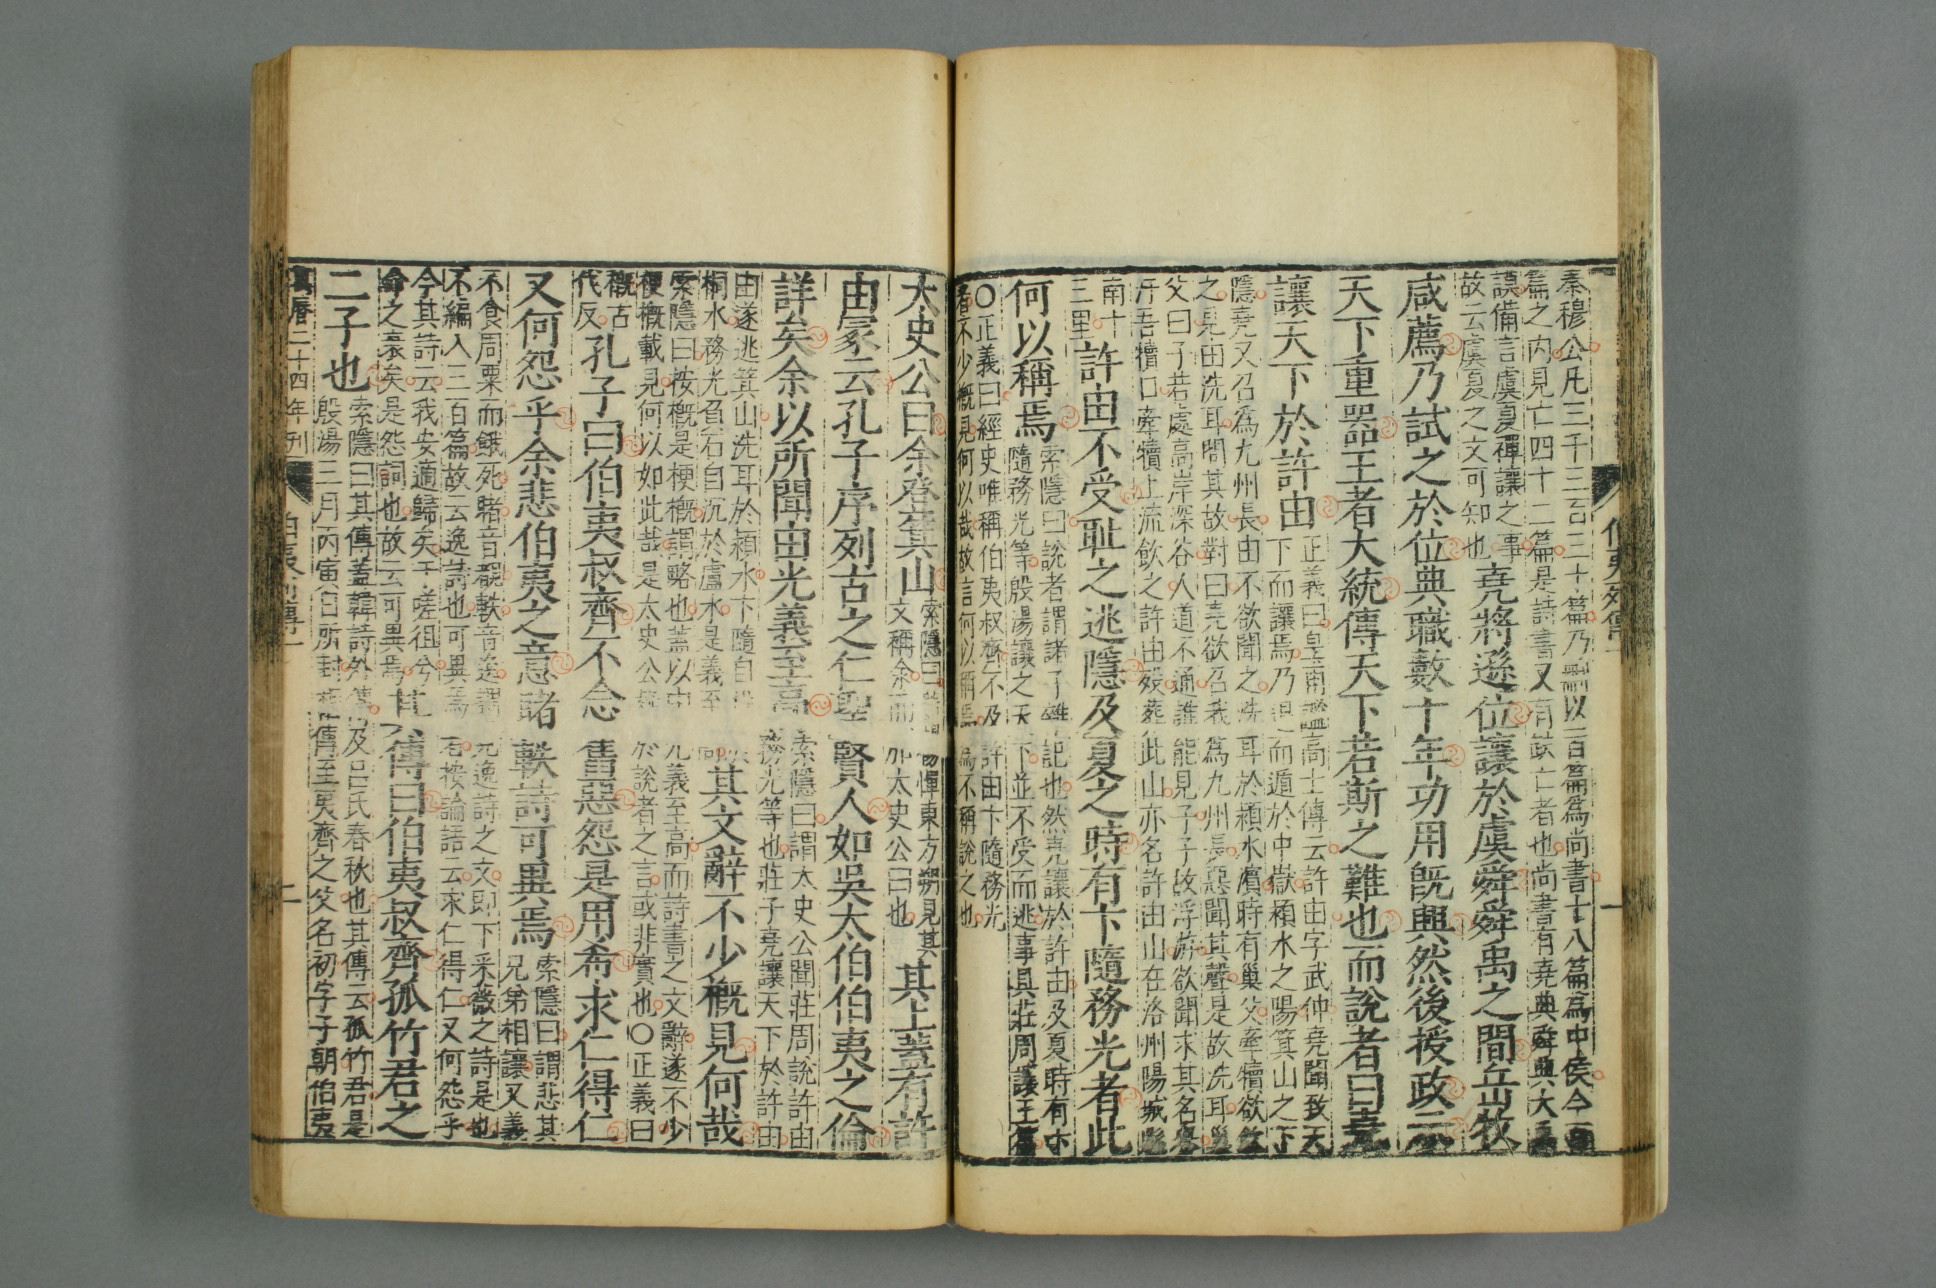 伯夷列傳
一
秦穆公凡三千三百三十篇乃刪以一百篇爲尚書十八篇爲中侯今百
篇之內見亡四十二篇是詩書又有缺亡者也尚書有堯典舜典大禹
謨備言虞夏禪讓之事
故云虞夏之文可知也
堯將遜位讓於虞舜舜禹之間岳牧
咸薦乃試之於位典職數十年功用旣興然後授政示
天下重器王者大統傳天下若斯之難也而說者曰堯
讓天下於許由
正義曰皇甫謐高士傳云許由字武仲堯聞致天
下而讓焉乃退而遁於中嶽潁水之陽箕山之下
隱堯又召爲九州長由不欲聞之洗耳於潁水濱時有巢父牽犢欲飲
之見由洗耳問其故對曰堯欲召我爲九州長惡聞其聲是故洗耳巢
父曰子若處高岸深谷人道不通誰能見子子故浮游欲聞求其名譽
汙吾犢口牽犢上流飲之許由歿葬此山亦名許由山在洛州陽城縣
南十
三里
許由不受恥之逃隱及夏之時有卞隨務光者此
何以稱焉
索隱曰說者謂諸子雜記也然堯讓於許由及夏時有卞
隨務光等殷湯讓之天下並不受而逃事具莊周讓王篇
〇正義曰經史唯稱伯夷叔齊不及許由卞隨務光
者不少概見何以哉故言何以稱焉爲不稱說之也
太史公曰余登箕山
索隱曰
文稱余而
楊惲東方朔見其
加太史公曰也
其上蓋有許
由冢云孔子序列古之仁聖賢人如吳太伯伯夷之倫
詳矣余以所聞由光義至高
索隱曰謂太史公聞莊周說許由
務光等也莊子堯讓天下於許由
由遂逃箕山洗耳於潁水卞隨自投
桐水務光負石自沉於盧水是義至
其文辭不少槪見何哉
索隱曰按槪是梗槪謂略也蓋以由光義至高而詩書之文辭遂不少
梗槪載見何以如此哉是太史公疑於說者之言或非實也〇正義曰
槪古
代反
孔子曰伯夷叔齊不念舊惡怨是用希求仁得仁
又何怨乎余悲伯夷之意睹軼詩可異焉
索隱曰謂悲其
兄弟相讓又義
不食周粟而餓死睹音覩軼音逸謂見逸詩之文卽下采薇之詩是也
不編入三百篇故云逸詩也可異焉者按論語云求仁得仁又何怨乎
今其詩云我安適歸矣于嗟徂兮
命之衰矣是怨詞也故云可異焉
其傳曰伯夷叔齊孤竹君之
二子也
索隱曰其傳蓋韓詩外傳及呂氏春秋也其傳云孤竹君是
殷湯三月丙寅日所封相傳至夷齊之父名初字子朝伯夷
萬曆二十四年刊
伯夷列傳一
二